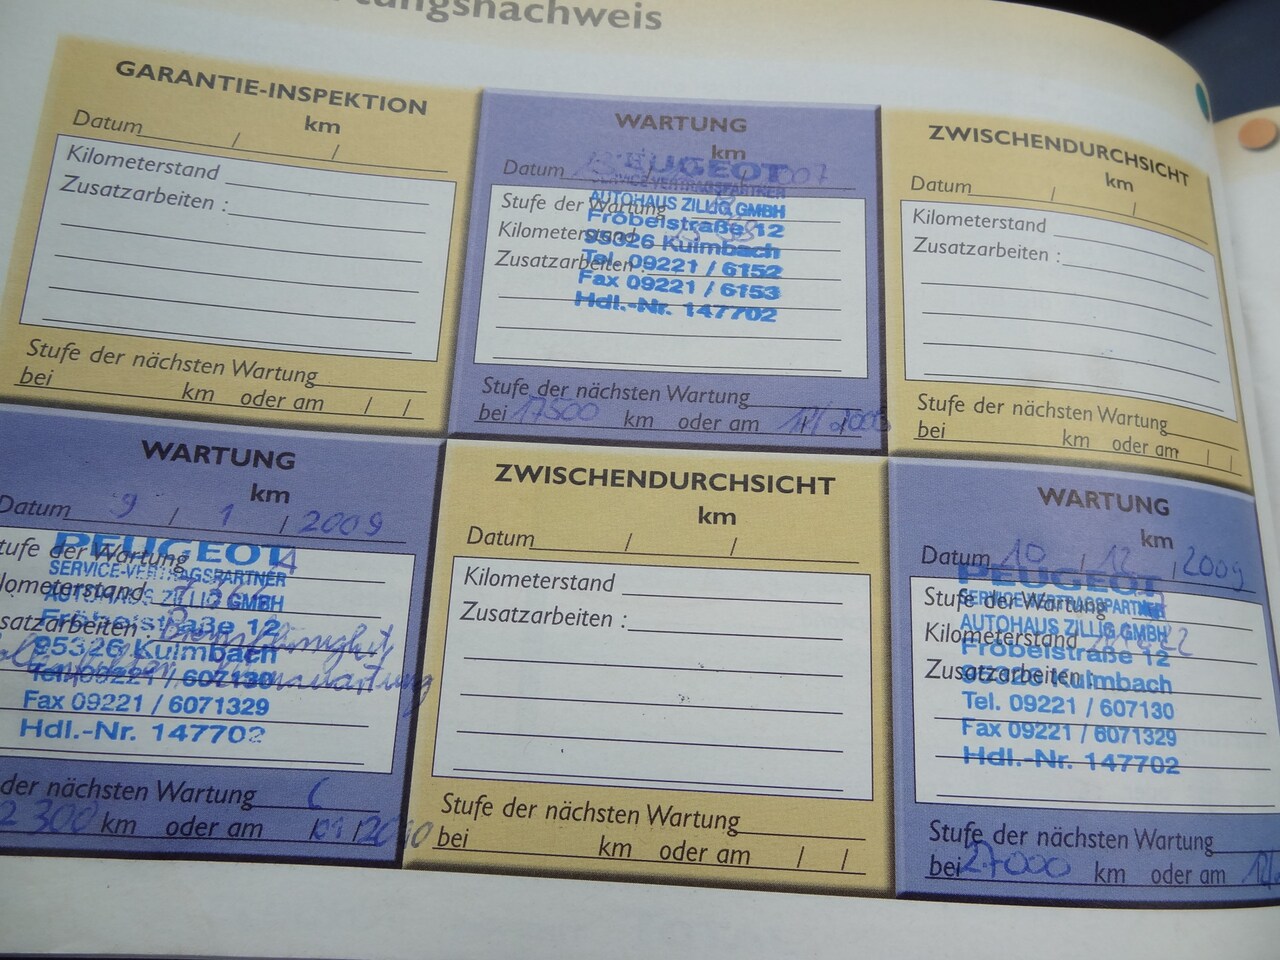 GARANTIE-INSPEKTION
km
Datum / /
Kilometerstand
Zusatzarbeiten :
Stufe der nächsten Wartung
bei km oder am / /
WARTUNG
km
Datum
PEUGEOT
SERVICE-VERTRAGSPARTNER
Stufe der Wartung
AUTOHAUS ZILLIG GMBH
Fröbelstraße 12
Kilometerstand
95326 Kulmbach
Zusatzarbeiten :
Tel. 09221 / 6152
Fax 09221 / 6153
Hdl.-Nr. 147702
Stufe der nächsten Wartung
bei 17500 km oder am
ZWISCHENDURCHSICHT
km
Datum / /
Kilometerstand
Zusatzarbeiten :
Stufe der nächsten Wartung
bei km oder am / /
WARTUNG
km
Datum 9 / 1 / 2009
tufe der Wartung 4
PEUGEOT
SERVICE-VERTRAGSPARTNER
lometerstand
AUTOHAUS ZILLIG GMBH
Fröbelstraße 12
satzarbeiten :
95326 Kulmbach
Tel. 09221 / 607130
Fax 09221 / 6071329
Hdl.-Nr. 147702
der nächsten Wartung
2300 km oder am /01/2010
ZWISCHENDURCHSICHT
km
Datum / /
Kilometerstand
Zusatzarbeiten :
Stufe der nächsten Wartung
bei km oder am / /
WARTUNG
km
Datum 10 / 12 / 2009
PEUGEOT
Stufe der Wartung
SERVICE-VERTRAGSPARTNER
AUTOHAUS ZILLIG GMBH
Kilometerstand
Fröbelstraße 12
Zusatzarbeiten :
95326 Kulmbach
Tel. 09221 / 607130
Fax 09221 / 6071329
Hdl.-Nr. 147702
Stufe der nächsten Wartung
bei 27000 km oder am